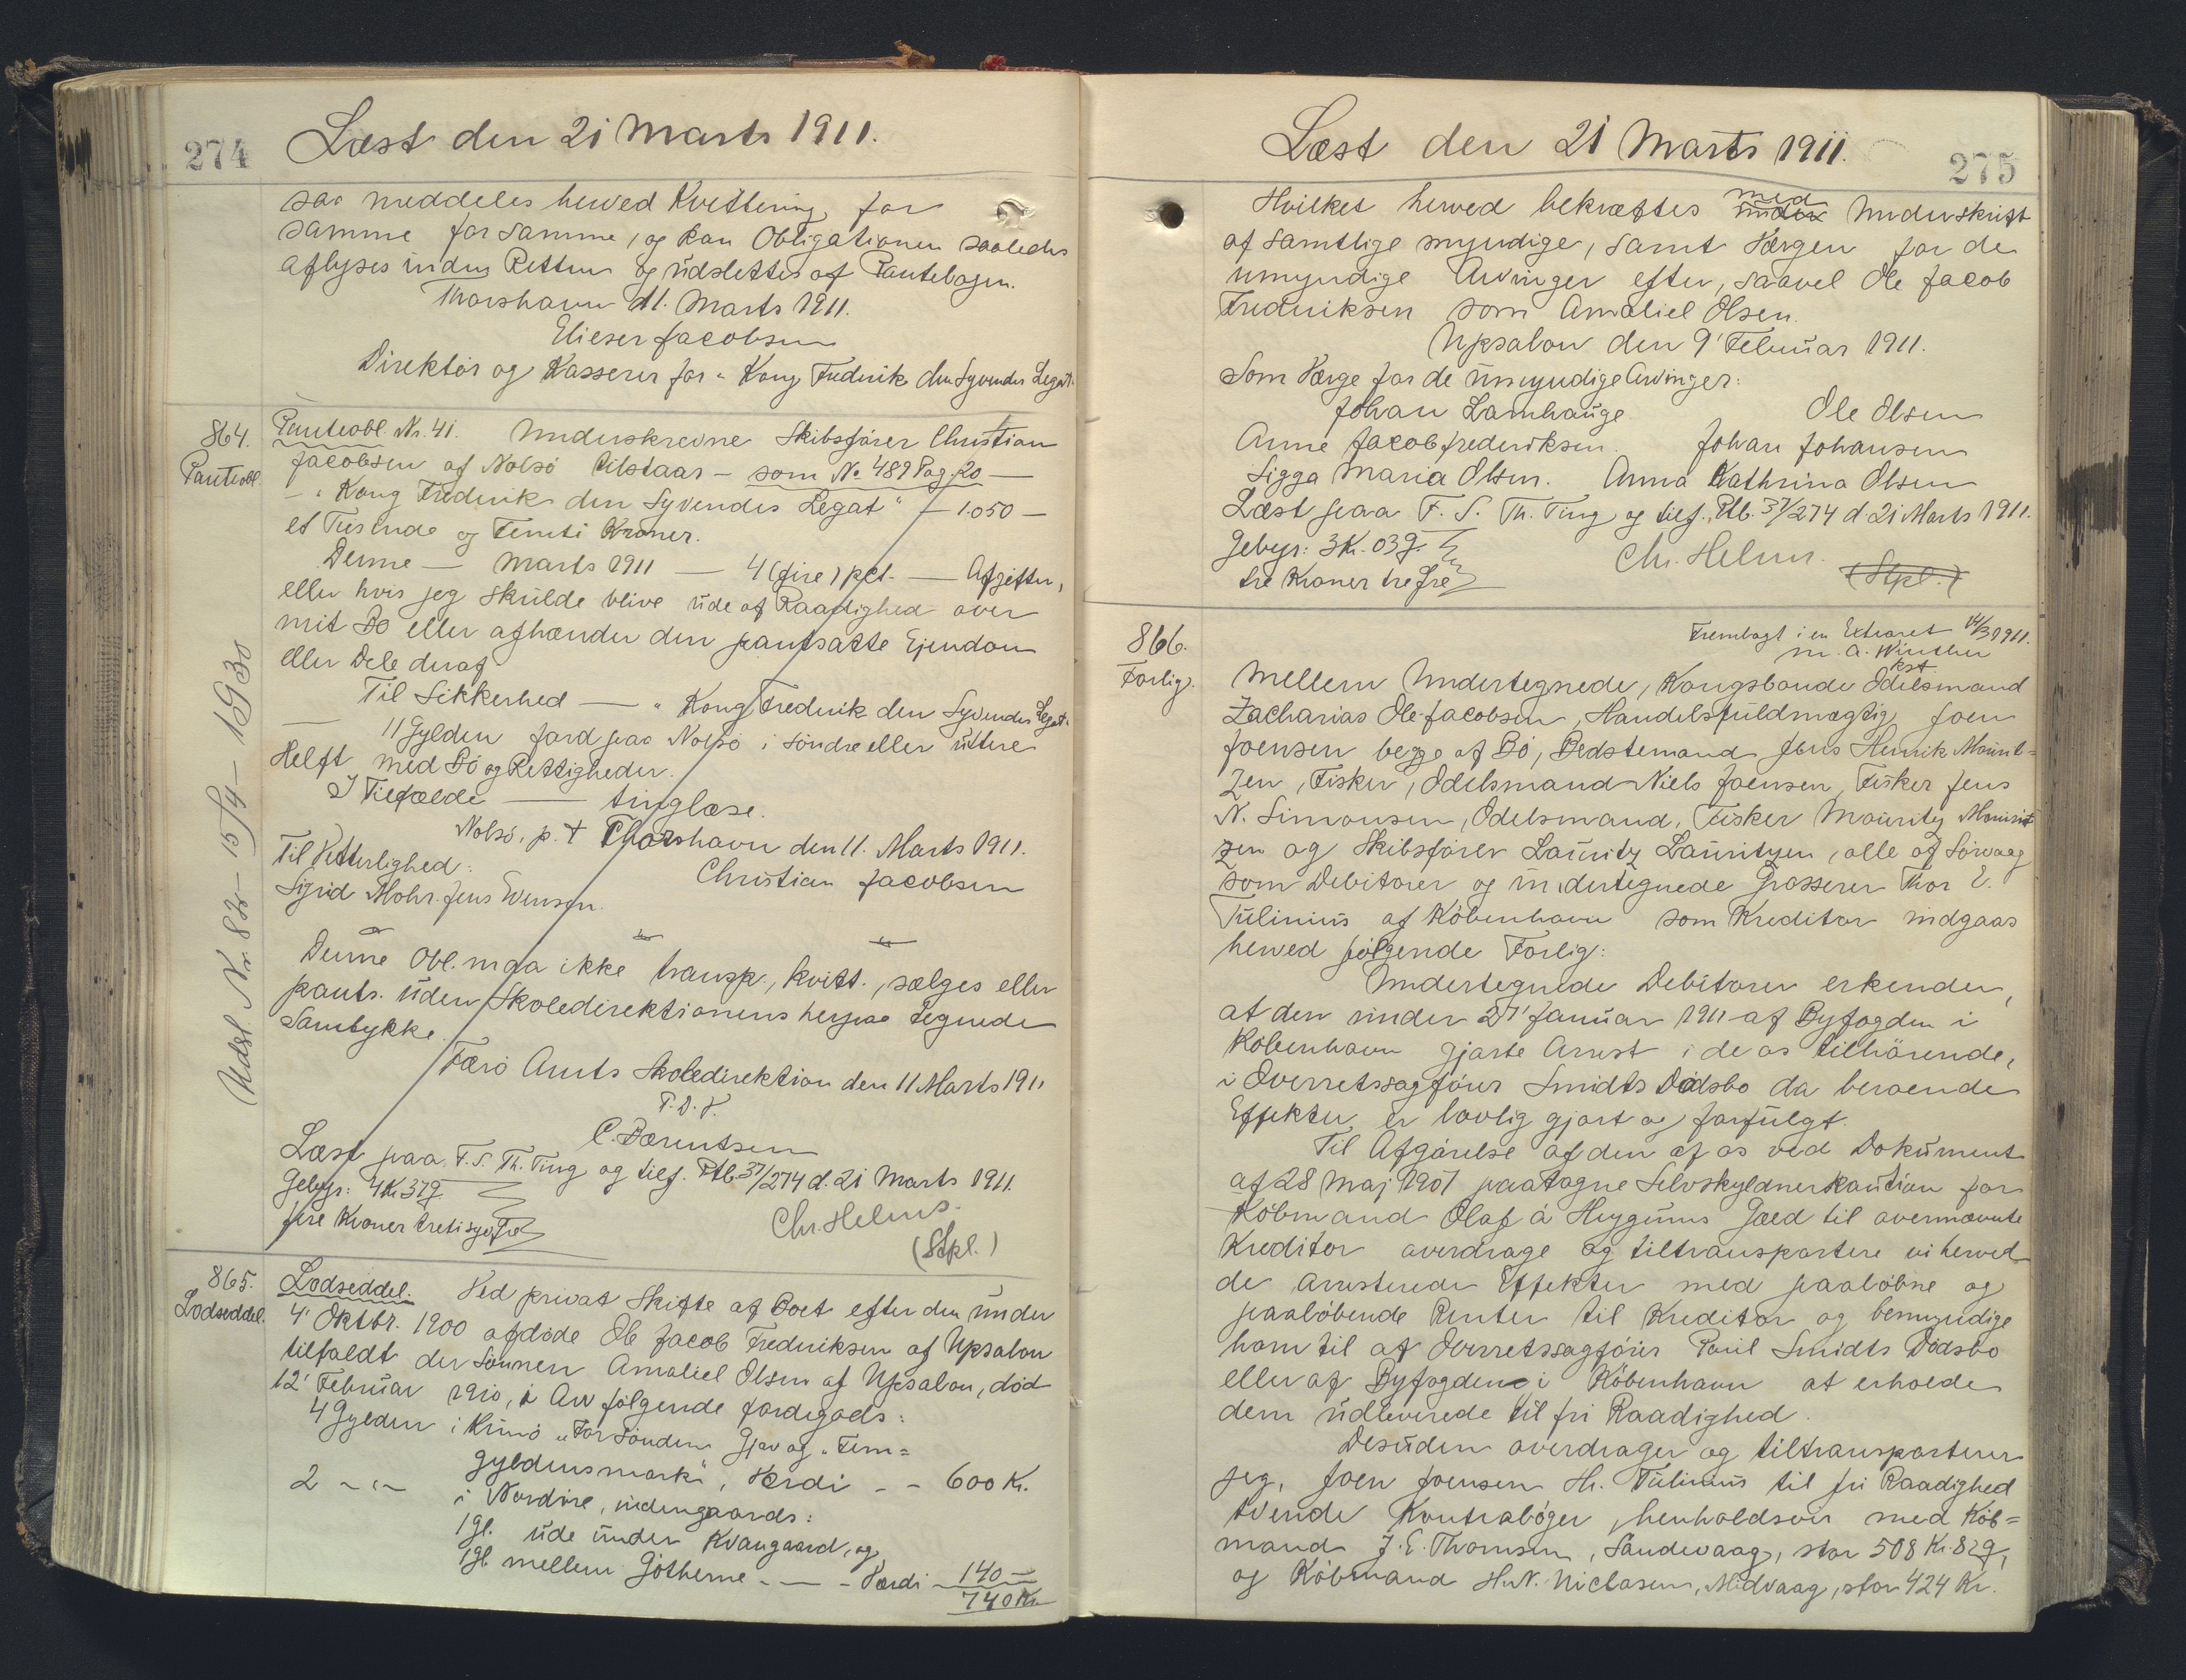 274
Læst den 21 Marts 1911.
saa meddeles herved Kvittering for
samme for samme, og kan Obligationen saaledes
aflyses inden Retten og udslettes af Pantebogen.
Thorshavn d 11. Marts 1911.
Elieser Jacobsen
Direktör og Kasserer for "Kong Frederik den Syvendes Legat".
864.
Panteobl.
Panteobl. Nr. 41. Underskrevne Skibsfører Christian
Jacobsen af Nolsö tilstaar – som No 489 Pag. 20 —
– "Kong Frederik den Syvendes Legat" – 1.050 –
et Tusinde og Femti Kroner.
Denne — Marts 1911 — 4 (fire) pCt. — Afgiften,
eller hvis jeg skulde blive ude af Raadighed over
mit Bo eller afhænder den pantsatte Ejendom
eller Dele deraf
Til Sikkerhed — "Kong Frederik den Syvendes Legat"
— 11 Gylden Jord paa Nolsö i söndre eller uttere
Helft med Bö og Rettigheder.
I Tilfælde — tinglæse.
Nolsö, p. t. Thorshavn den 11. Marts 1911.
Til Vitterlighed:
Christian Jacobsen
Sigrid Mohr. Jens Evensen.
Denne Obl. maa ikke transp., kvitt., sælges eller
pants. uden Skoledirektionens herpaa tegnede
Samtykke.
Færö Amts Skoledirektion den 11 Marts 1911
P. D. V.
C. Bærentsen
Læst paa F. S. Th. Ting og tilf. Ptb. 37/274 d. 21 Marts 1911.
Gebyr: 4 Kr 37 Ø.
fire Kroner treti syv Øre
Chr. Helms.
(Stpl.)
Udsl Nr. 820 – 15/4 – 1930
865.
Lodseddel.
Lodseddel. Ved privat Skifte af Boet efter den under
4' Oktbr. 1900 afdöde Ole Jacob Frederiksen af Upsalon
tilfaldt der Sönnen Amaliel Olsen af Upsalon, död
12' Februar 1910, i Arv fölgende Jordegods:
4 Gylden i Kunö "For Sönden Gjov og "Fem=
gyldensmark", Værdi - - 600 Kr.
2 — " — i Nordöre, indengaards:
1 gl. ude under Kvangaard, og
1 gl. mellem Götherne - — - Værdi 140 –
740 Kr.
275
Læst den 21 Marts 1911.
Hvilket herved bekræftes under med Underskrift
af samtlige myndige, samt Værgen for de
umyndige Arvinger efter, saavel Ole Jacob
Frederiksen som Amaliel Olsen.
Upsalon den 9' Februar 1911.
Som Værge for de umyndige Arvinger:
Johan Lamhauge Ole Olsen
Anne Jacobfrederiksen. Johan Johansen
Sigga Maria Olsen. Anna Kathrina Olsen
Læst paa F. S. Th. Ting og tilf. Ptb. 37/274 d. 21 Marts 1911.
Gebyr: 3 Kr. 03 Ø.
tre Kroner tre Øre
Chr. Helms.
(Stpl.)
866.
Forlig.
Fremlagt i en Extraret 14/3 1911.
M. A. Winther
kst
Mellem Undertegnede, Kongsbonde Odelsmand
Zacharias Ole Jacobsen, Handelsfuldmægtig Joen
Joensen begge af Bö, Bedstemand Jens Henrik Mourit=
zen, Fisker, Odelsmand Niels Joensen, Fisker Jens
N. Simonsen, Odelsmand, Fisker Mouritz Mourit=
zen og Skibsfører Lauritz Lauritzen, alle af Sörvaag
som Debitorer og undertegnede Grosserer Thor E.
Tulinius af Köbenhavn som Kreditor indgaas
herved fölgende Forlig:
Undertegnede Debitorer erkender,
at den under 27' Januar 1911 af Byfogden i
Köbenhavn gjorte Arrest i de os tilhörende,
i Overretssagförer Smidts Dödsbo da beroende
Effekter er lovlig gjort og forfulgt.
Til Afgörelse af den af os ved Dokument
af 28 Maj 1907 paatagne Selvskyldnerkaution for
Köbmand Olaf á Heygums Gæld til overnævnte
Kreditor overdrage og tiltransportere vi herved
de arresterede Effekter med paalöbne og
paalöbende Renter til Kreditor og bemyndige
ham til af Overretssagförer Poul Smidts Dödsbo
eller af Byfogden i Köbenhavn at erholde
dem udleverede til fri Raadighed.
Desuden overdrager og tiltransporterer
jeg, Joen Joensen Hr. Tulinius til fri Raadighed
tvende Kontraböger, henholdsvis med Köb=
mand J. E. Thomsen, Sandevaag, stor 508 Kr. 82 Ø,
og Köbmand H. N. Niclasen, Midvaag, stor 424 Kr.